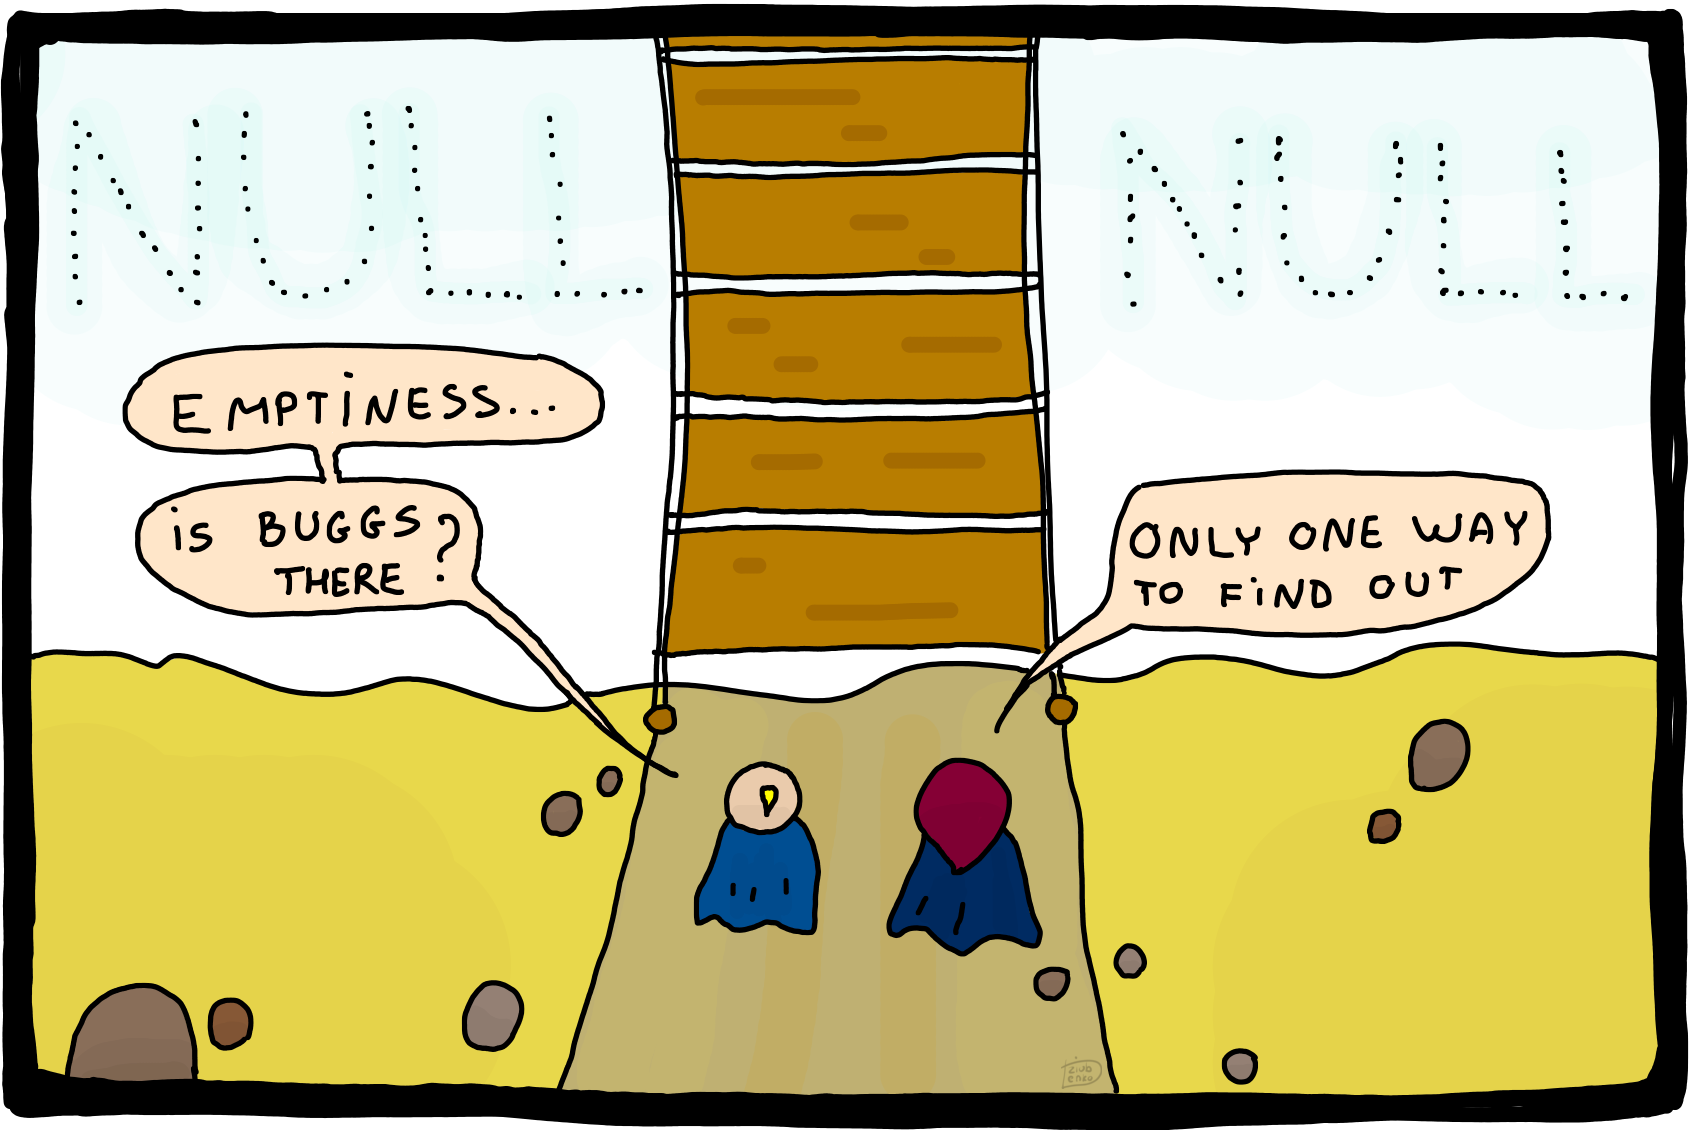 NULL
NULL
EMPTiNESS...
iS BUGGS
THERE ?
ONLY ONE WAY
TO FiND OUT